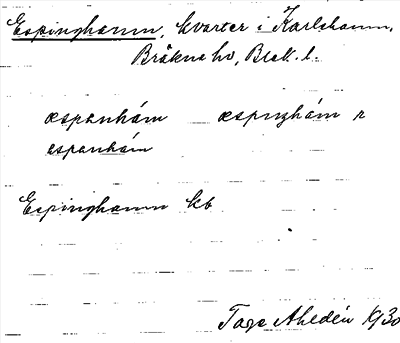 Espinghamn, kvarter i Karlshamn,
Bräkne hd, Blek. l.
æspanhám æspiŋhám r
espanhám
Espinghamn kb
Tage Ahldén 1930